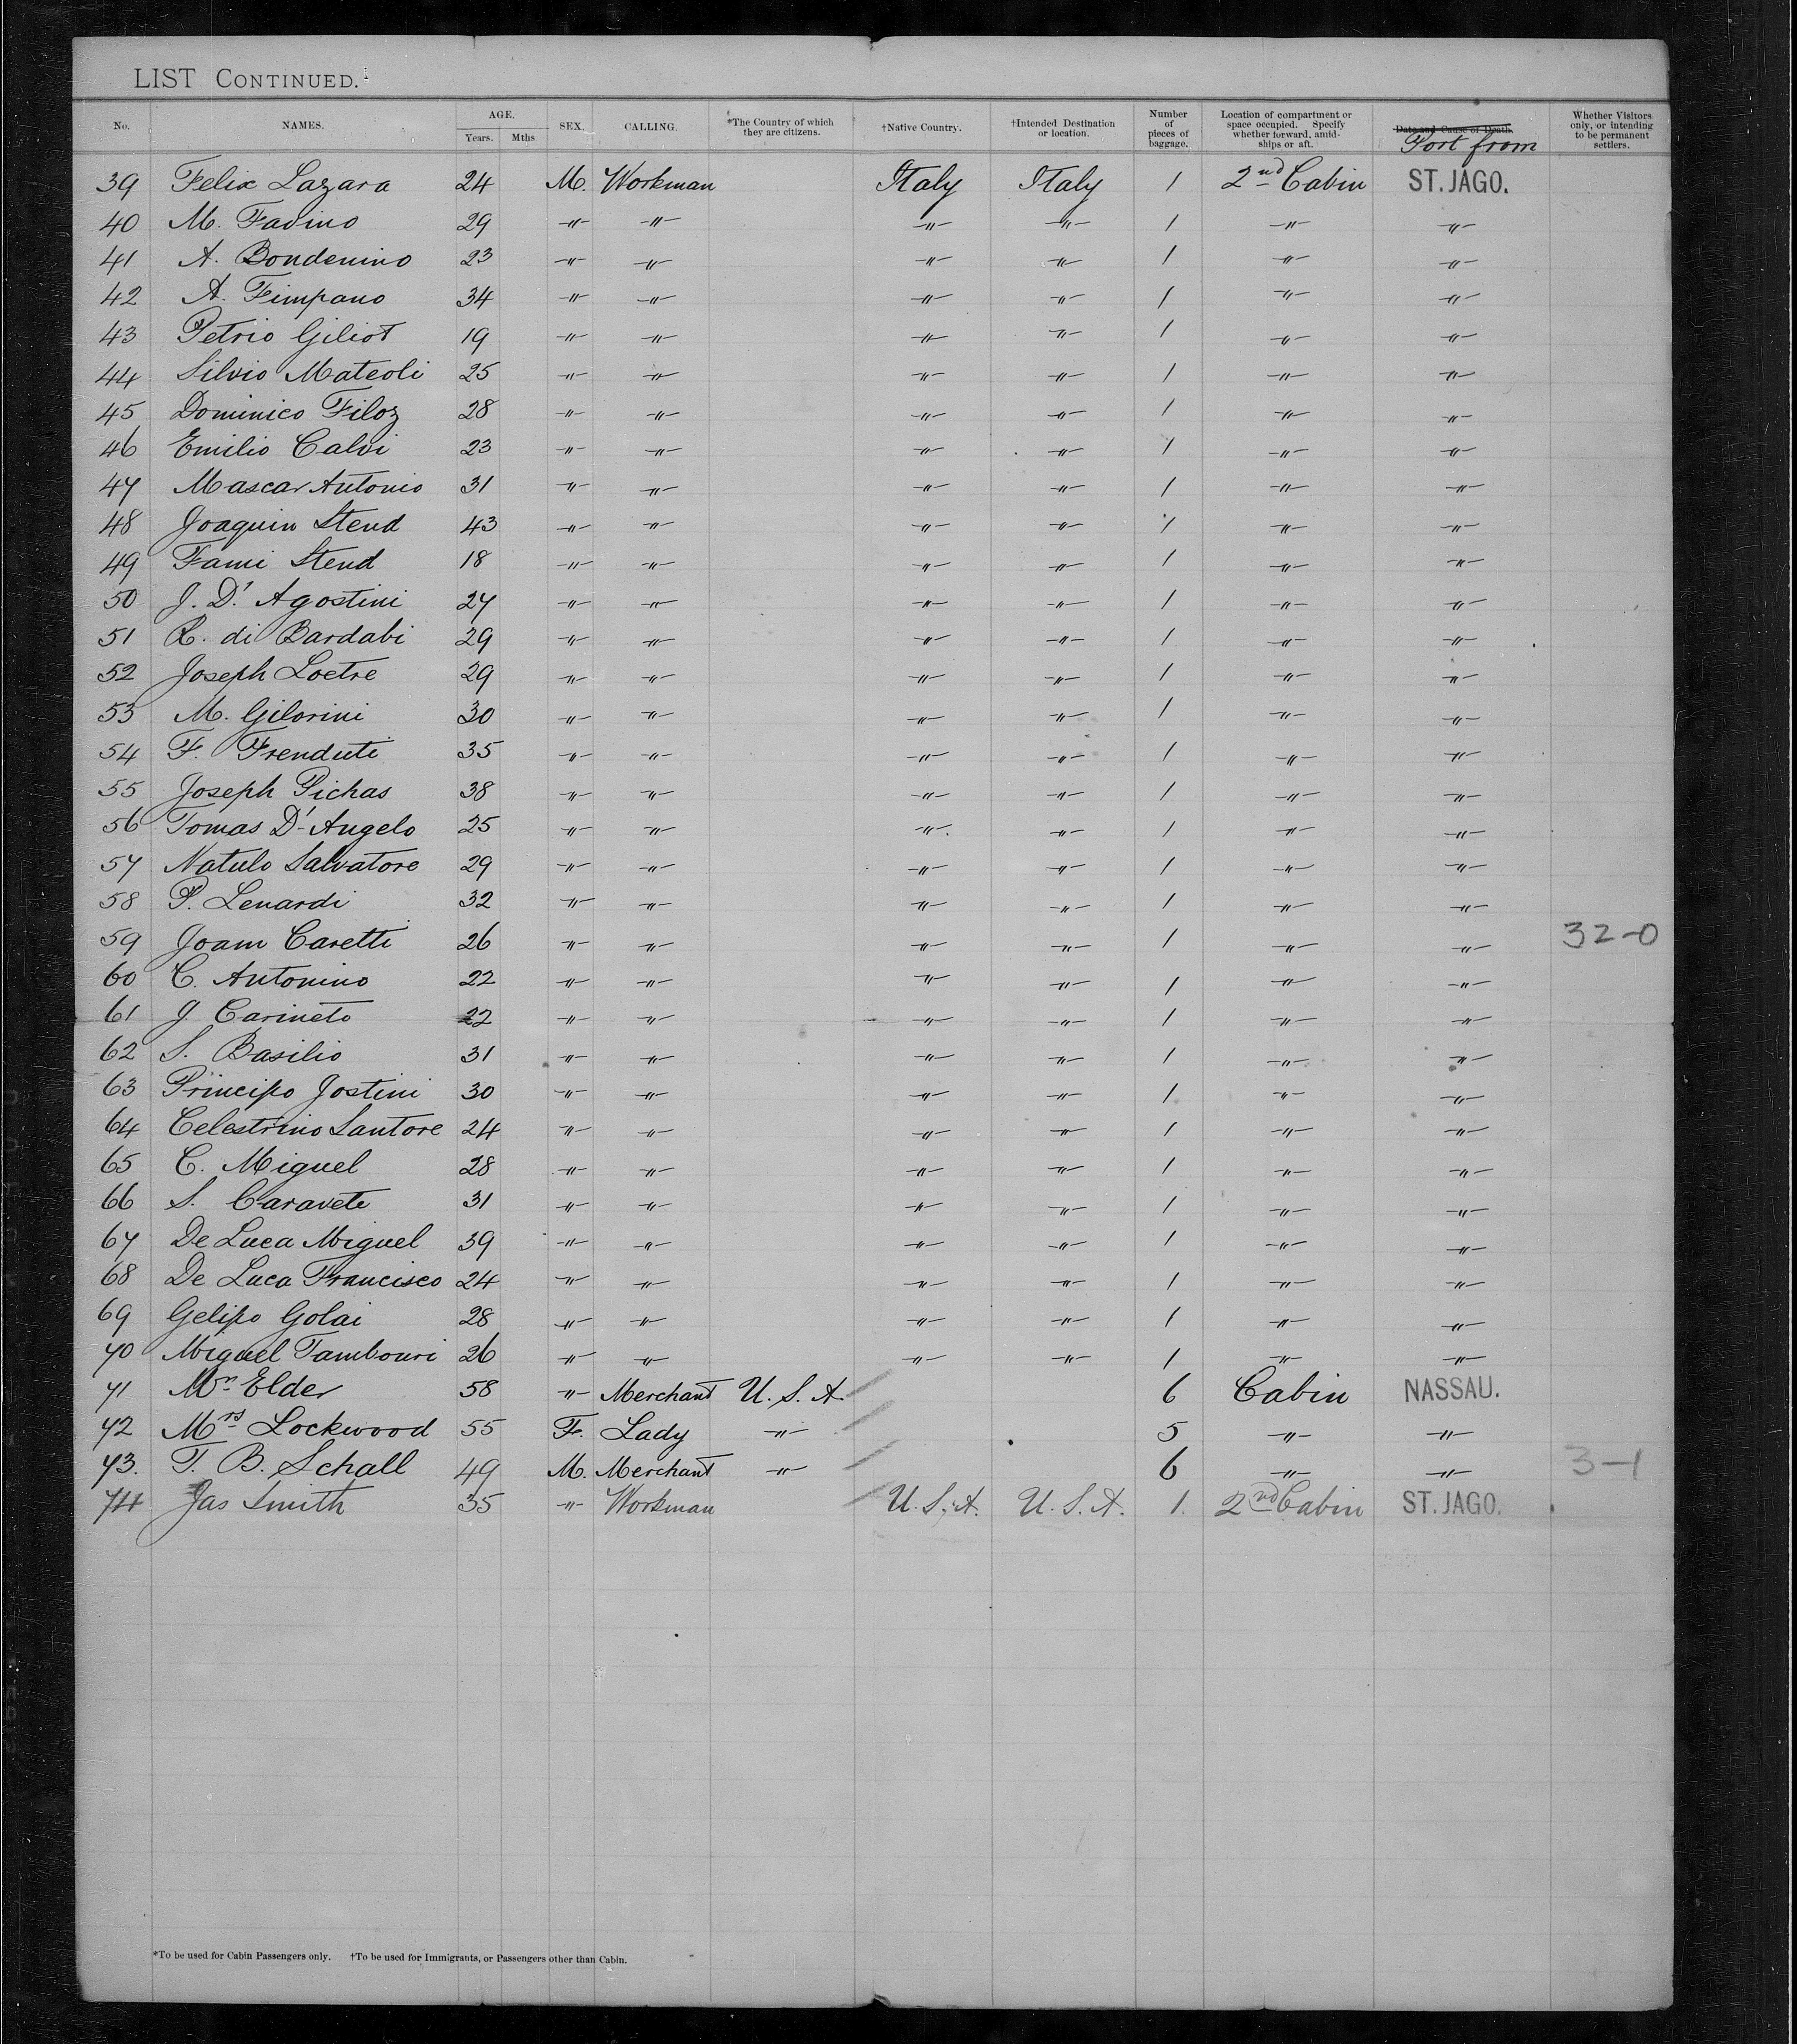 LIST CONTINUED.
No. NAMES. AGE. Years. Mths SEX. CALLING. *The Country of which they are citizens. †Native Country. †Intended Destination or location. Number of pieces of baggage. Location of compartment or space occupied. Specify whether forward, amidships or aft. Date and Cause of Death. Port from Whether Visitors only, or intending to be permanent settlers.
39 Felix Lazara 24 M. Workman Italy Italy 1 2nd Cabin ST. JAGO.
40 M. Fadino 29 " " " " 1 " "
41 A. Bondenino 23 " " " " 1 " "
42 A. Fimpano 34 " " " " 1 " "
43 Petrio Giliot 19 " " " " 1 " "
44 Silvio Mateoli 25 " " " " 1 " "
45 Dominico Filoz 28 " " " " 1 " "
46 Emilio Calvi 23 " " " " 1 " "
47 Mascar Antonio 31 " " " " 1 " "
48 Joaquin Stend 43 " " " " 1 " "
49 Fami Stend 18 " " " " 1 " "
50 J. D'Agostini 27 " " " " 1 " "
51 R. di Bardabi 29 " " " " 1 " "
52 Joseph Loetre 29 " " " " 1 " "
53 M. Gilorini 30 " " " " 1 " "
54 F. Frenduti 35 " " " " 1 " "
55 Joseph Pichas 38 " " " " 1 " "
56 Tomas D'Angelo 25 " " " " 1 " "
57 Natulo Salvatore 29 " " " " 1 " "
58 P. Lenardi 32 " " " " 1 " "
59 Joam Caretti 26 " " " " 1 " " 32-0
60 C. Antonino 22 " " " " 1 " "
61 J Carineto 22 " " " " 1 " "
62 S. Basilio 31 " " " " 1 " "
63 Principo Jostini 30 " " " " 1 " "
64 Celestrino Santore 24 " " " " 1 " "
65 C. Miguel 28 " " " " 1 " "
66 S. Caravete 31 " " " " 1 " "
67 De Luca Miguel 39 " " " " 1 " "
68 De Luca Francisco 24 " " " " 1 " "
69 Gelipo Golai 28 " " " " 1 " "
70 Miguel Tambouri 26 " " " " 1 " "
71 Mr Elder 58 " Merchant U. S. A. 6 Cabin NASSAU.
72 Mrs Lockwood 55 F. Lady " 5 " "
73. T. B. Schall 49 M. Merchant " 6 " " 3-1
74 Jas Smith 35 " Workman U. S. A. U. S. A. 1. 2nd Cabin ST. JAGO.
*To be used for Cabin Passengers only. †To be used for Immigrants, or Passengers other than Cabin.